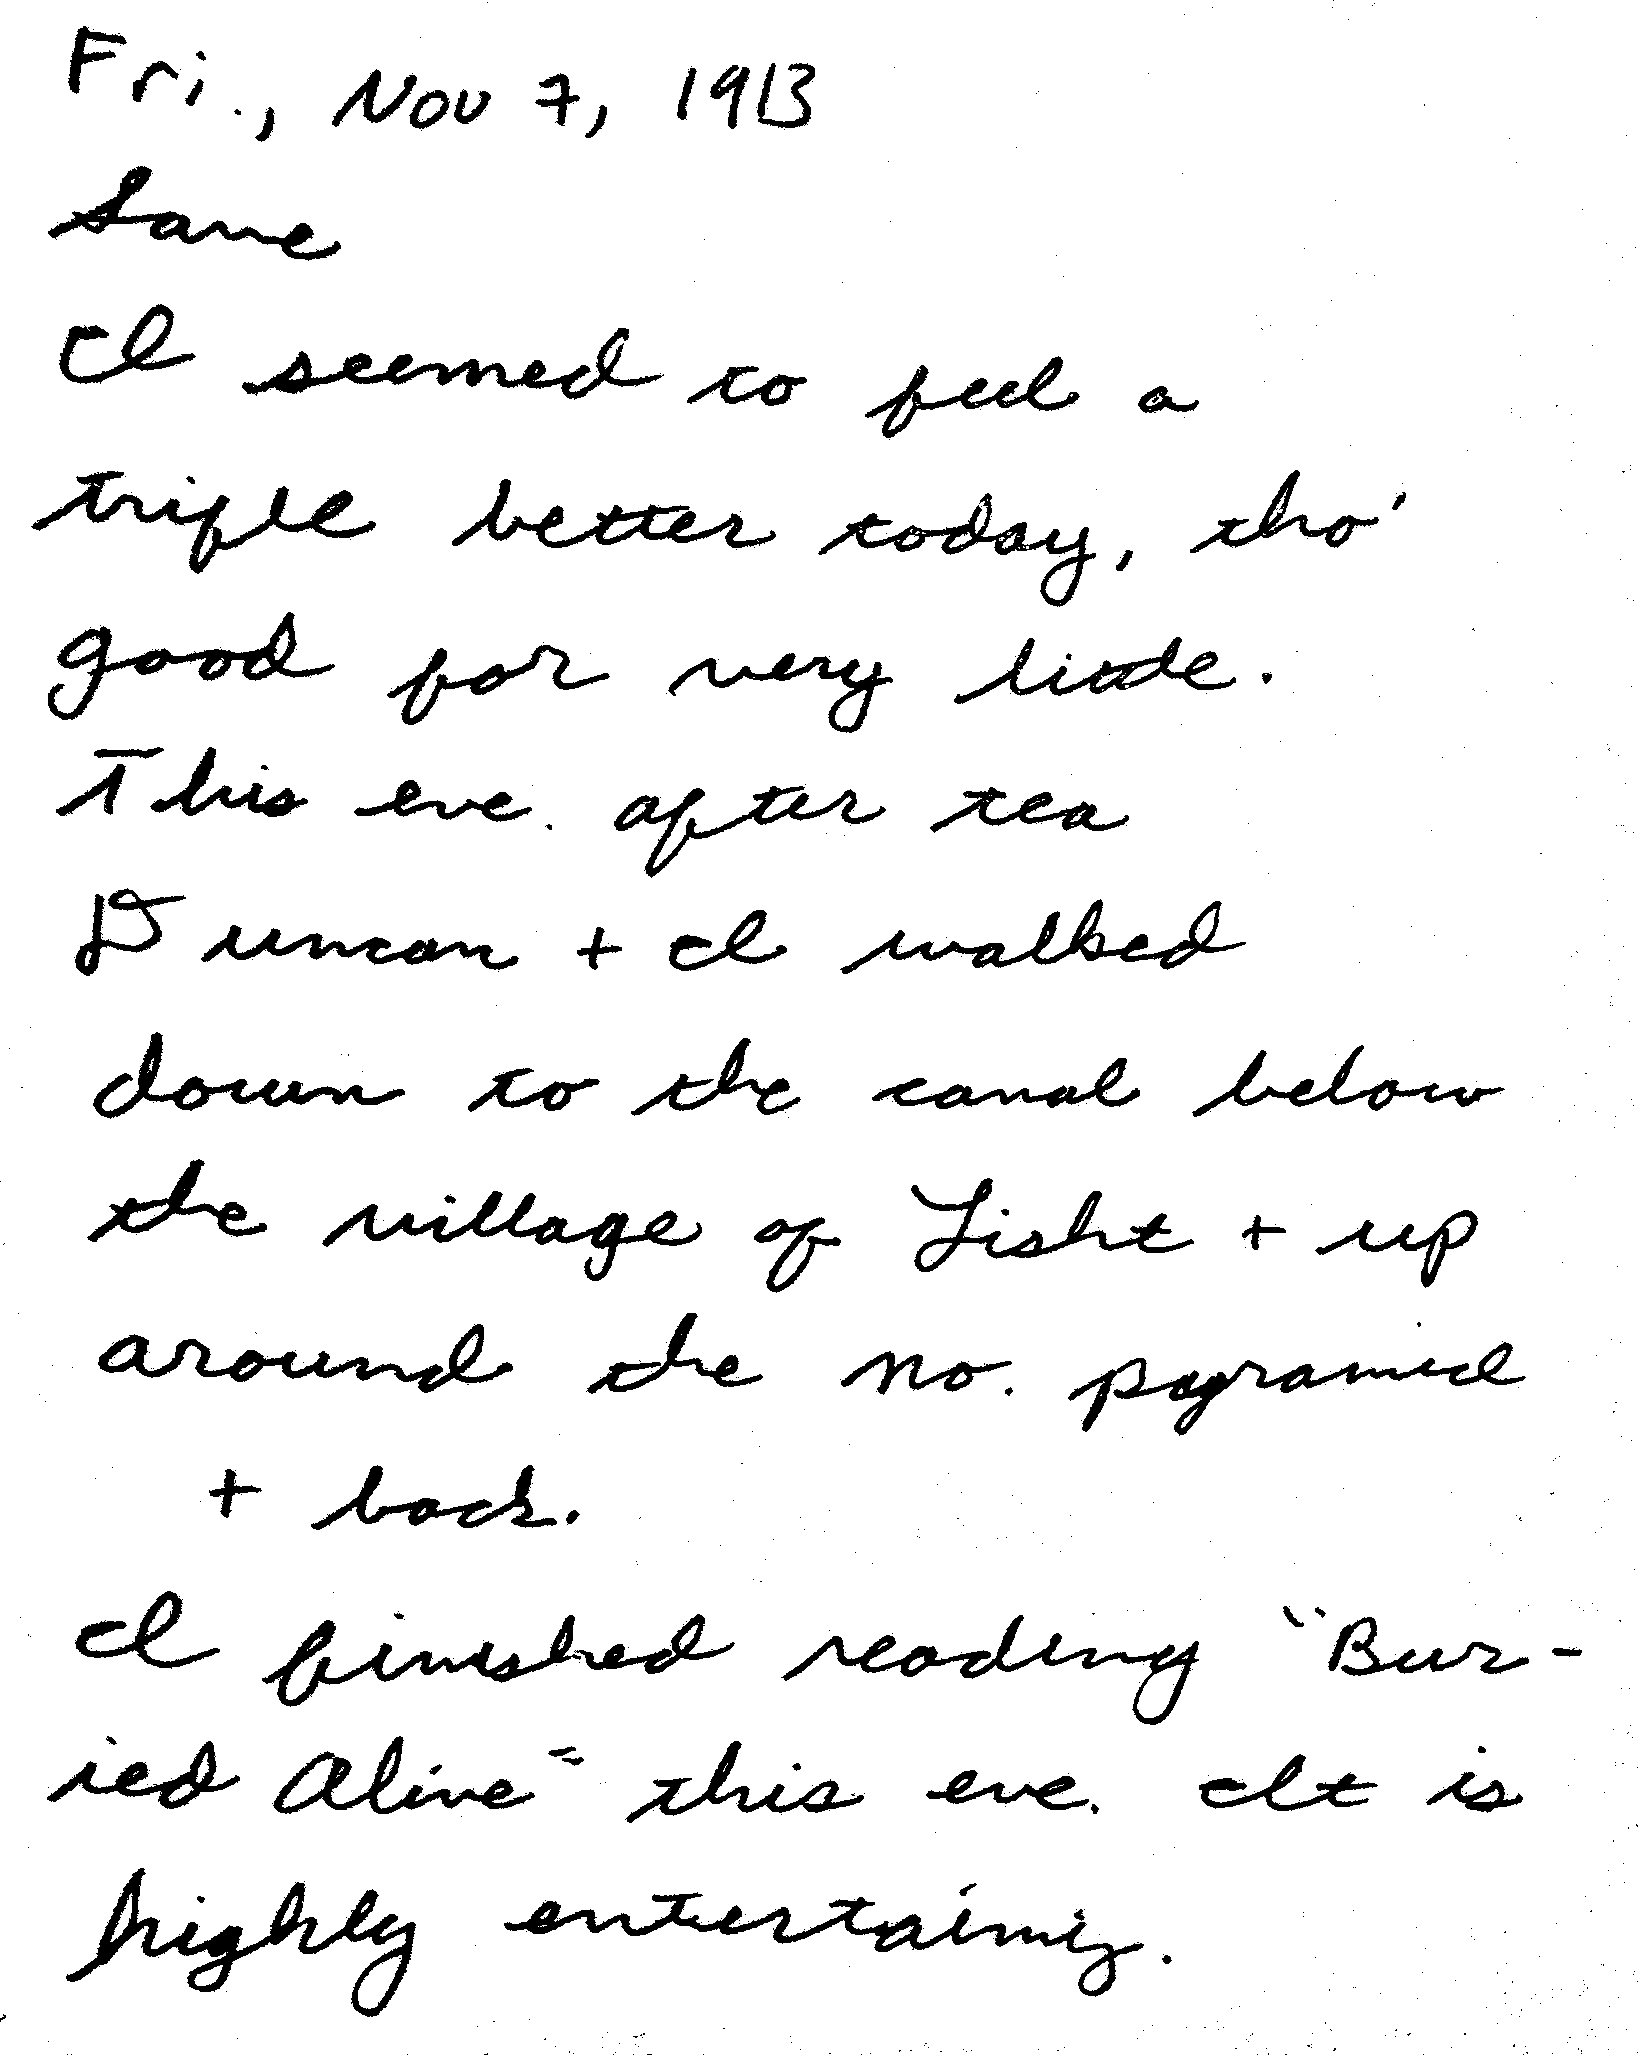 Fri., Nov 7, 1913
Same
I seemed to feel a
trifle better today, tho'
good for very little.
This eve. after tea
Duncan + I walked
down to the canal below
the village of Lisht + up
around the no. pyramid
+ back.
I finished reading "Bur-
ied Alive" this eve. It is
highly entertaining.